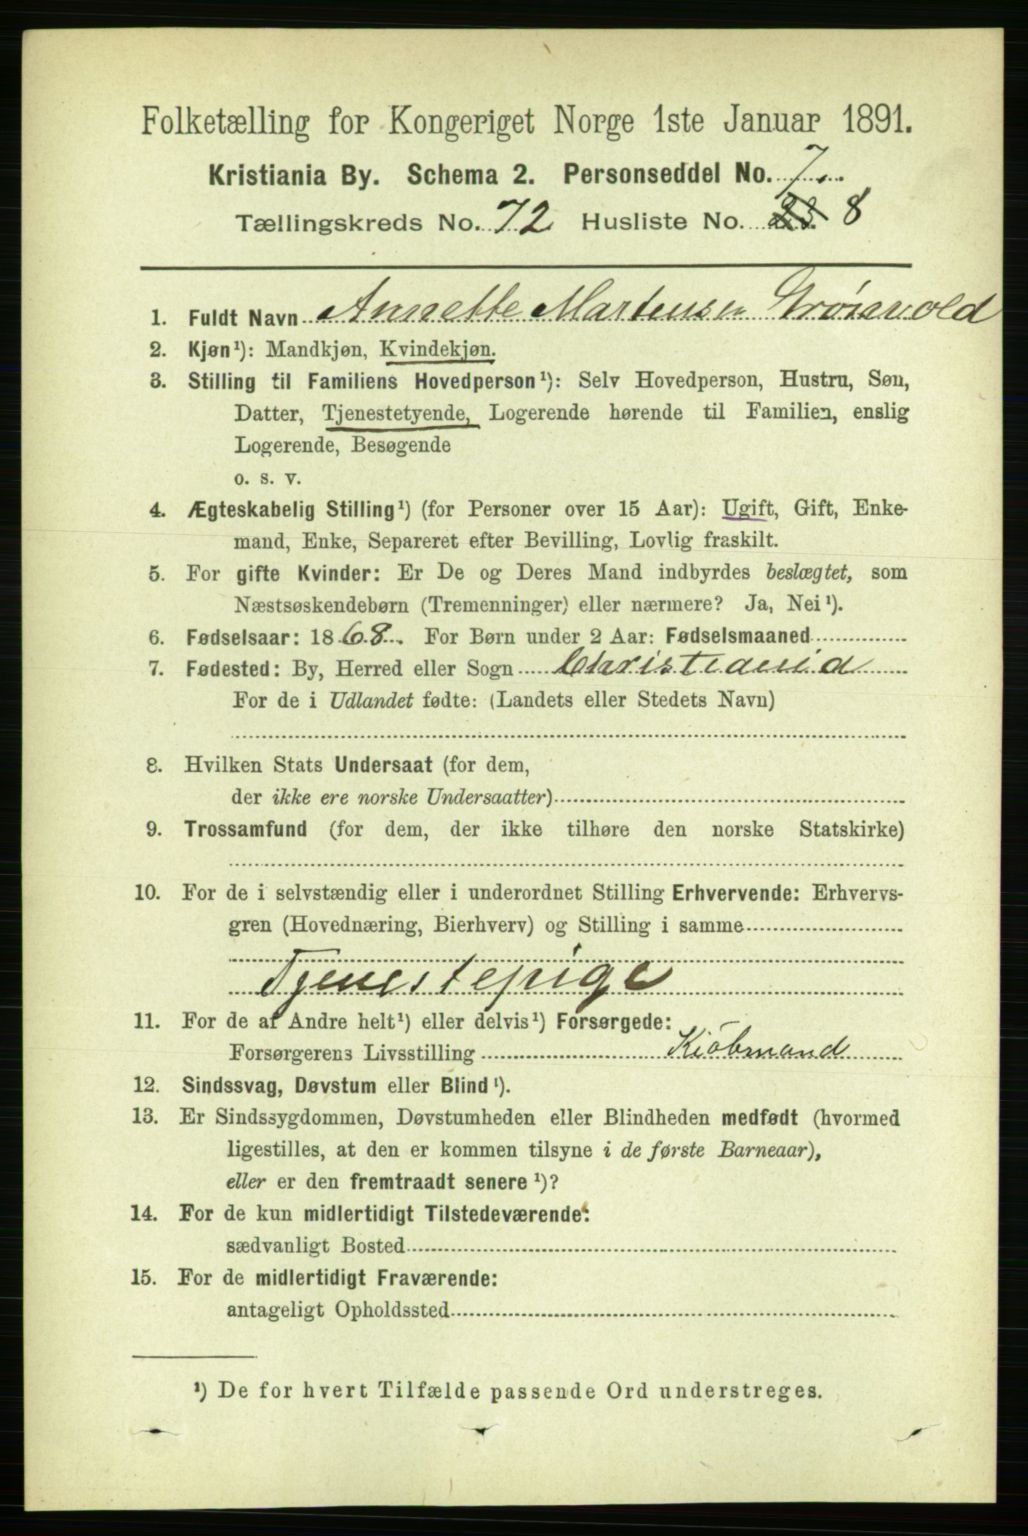 Folketælling for Kongeriget Norge 1ste Januar 1891.
Kristiania By. Schema 2. Personseddel No. 7.
Tællingskreds No. 72 Husliste No. 23. 8
1. Fuldt Navn Annette Martensen Grönvold
2. Kjøn¹): Mandkjøn, Kvindekjøn.
3. Stilling til Familiens Hovedperson¹): Selv Hovedperson, Hustru, Søn,
Datter, Tjenestetyende, Logerende hørende til Familien, enslig
Logerende, Besøgende
o. s. v.
4. Ægteskabelig Stilling¹) (for Personer over 15 Aar): Ugift, Gift, Enke-
mand, Enke, Separeret efter Bevilling, Lovlig fraskilt.
5. For gifte Kvinder: Er De og Deres Mand indbyrdes beslægtet, som
Næstsøskendebørn (Tremenninger) eller nærmere? Ja, Nei¹).
6. Fødselsaar: 1868. For Børn under 2 Aar: Fødselsmaaned
7. Fødested: By, Herred eller Sogn Christiania
For de i Udlandet fødte: (Landets eller Stedets Navn)
8. Hvilken Stats Undersaat (for dem,
der ikke ere norske Undersaatter)
9. Trossamfund (for dem, der ikke tilhøre den norske Statskirke)
10. For de i selvstændig eller i underordnet Stilling Erhvervende: Erhvervs-
gren (Hovednæring, Bierhverv) og Stilling i samme
Tjenestepige
11. For de af Andre helt¹) eller delvis¹) Forsørgede:
Forsørgerens Livsstilling Kiöbmand
12. Sindssvag, Døvstum eller Blind¹).
13. Er Sindssygdommen, Døvstumheden eller Blindheden medfødt (hvormed
ligestilles, at den er kommen tilsyne i de første Barneaar),
eller er den fremtraadt senere¹)?
14. For de kun midlertidigt Tilstedeværende:
sædvanligt Bosted
15. For de midlertidigt Fraværende:
antageligt Opholdssted
¹) De for hvert Tilfælde passende Ord understreges.